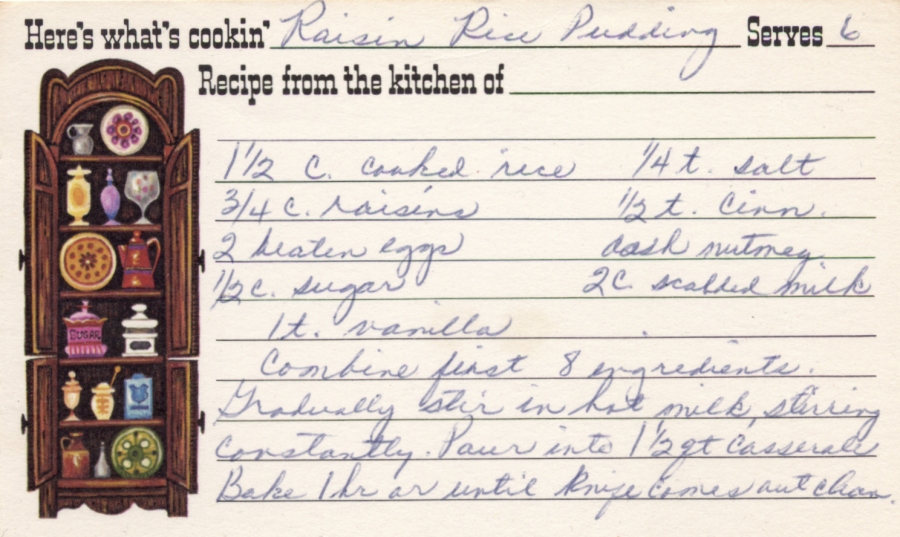 Here's what's cookin' Raisin Rice Pudding Serves 6
Recipe from the kitchen of
1 1/2 c. cooked rice 1/4 t. salt
3/4 c. raisins 1/2 t. cinn.
2 beaten eggs dash nutmeg
1/2 c. sugar 2 c. scalded milk
1 t. vanilla
Combine first 8 ingredients.
Gradually stir in hot milk, stirring
constantly. Pour into 1 1/2 qt casserole
Bake 1 hr or until knife comes out clean.
SUGAR